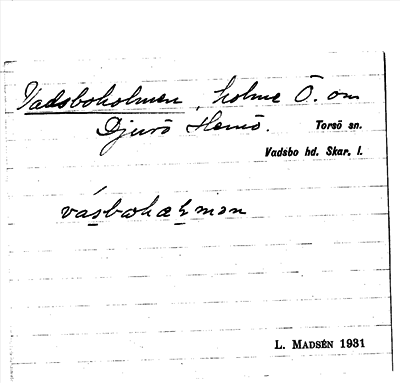 Vadsboholmen, holme Ö. om
Djurö Hemö.
Torsö sn.
Vadsbo hd. Skar. l.
L. MADSÉN 1931